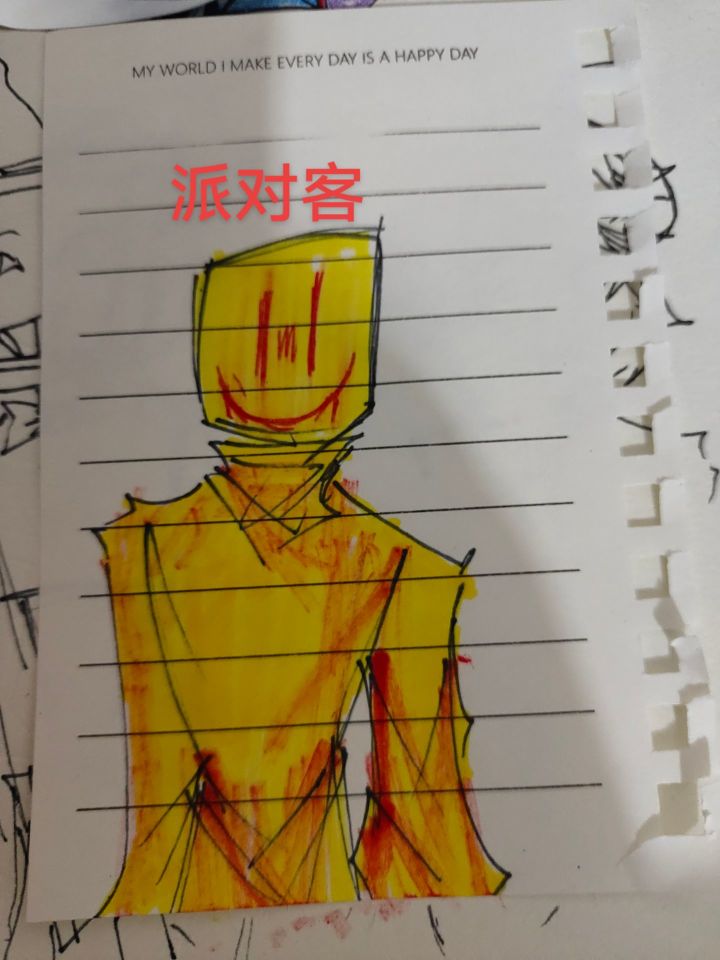 MY WORLD I MAKE EVERY DAY IS A HAPPY DAY
派对客